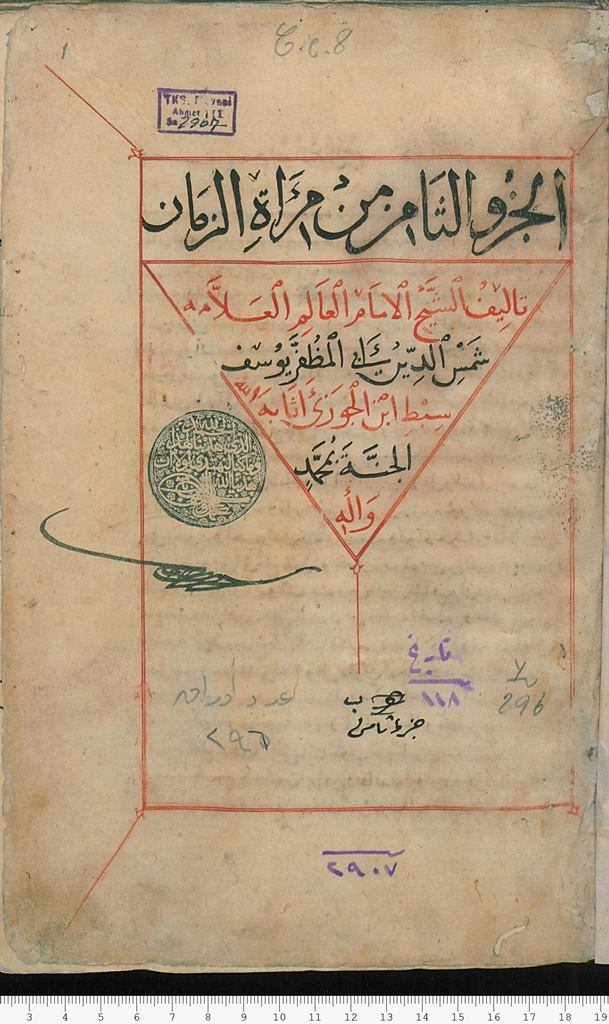 T.C.8
1
TKS. 
Ahmet III
2907
الجزو الثامن من مرآة الزمان
تاليف الشيخ الامام العالم العلامه
شمس الدين ابي المظفر يوسف
سبط ابن الجوزي اثابه الله
الجنة بمحمد
واله
الحمد لله
الذي هدانا لهذا
وما كنا لنهتدي لولا ان
هدانا الله
تاريخ
١١٨
296
جزء ثامن
عدد اوراقه
٢٩٦
٢٩٠٧
3 4 5 6 7 8 9 10 11 12 13 14 15 16 17 18 19